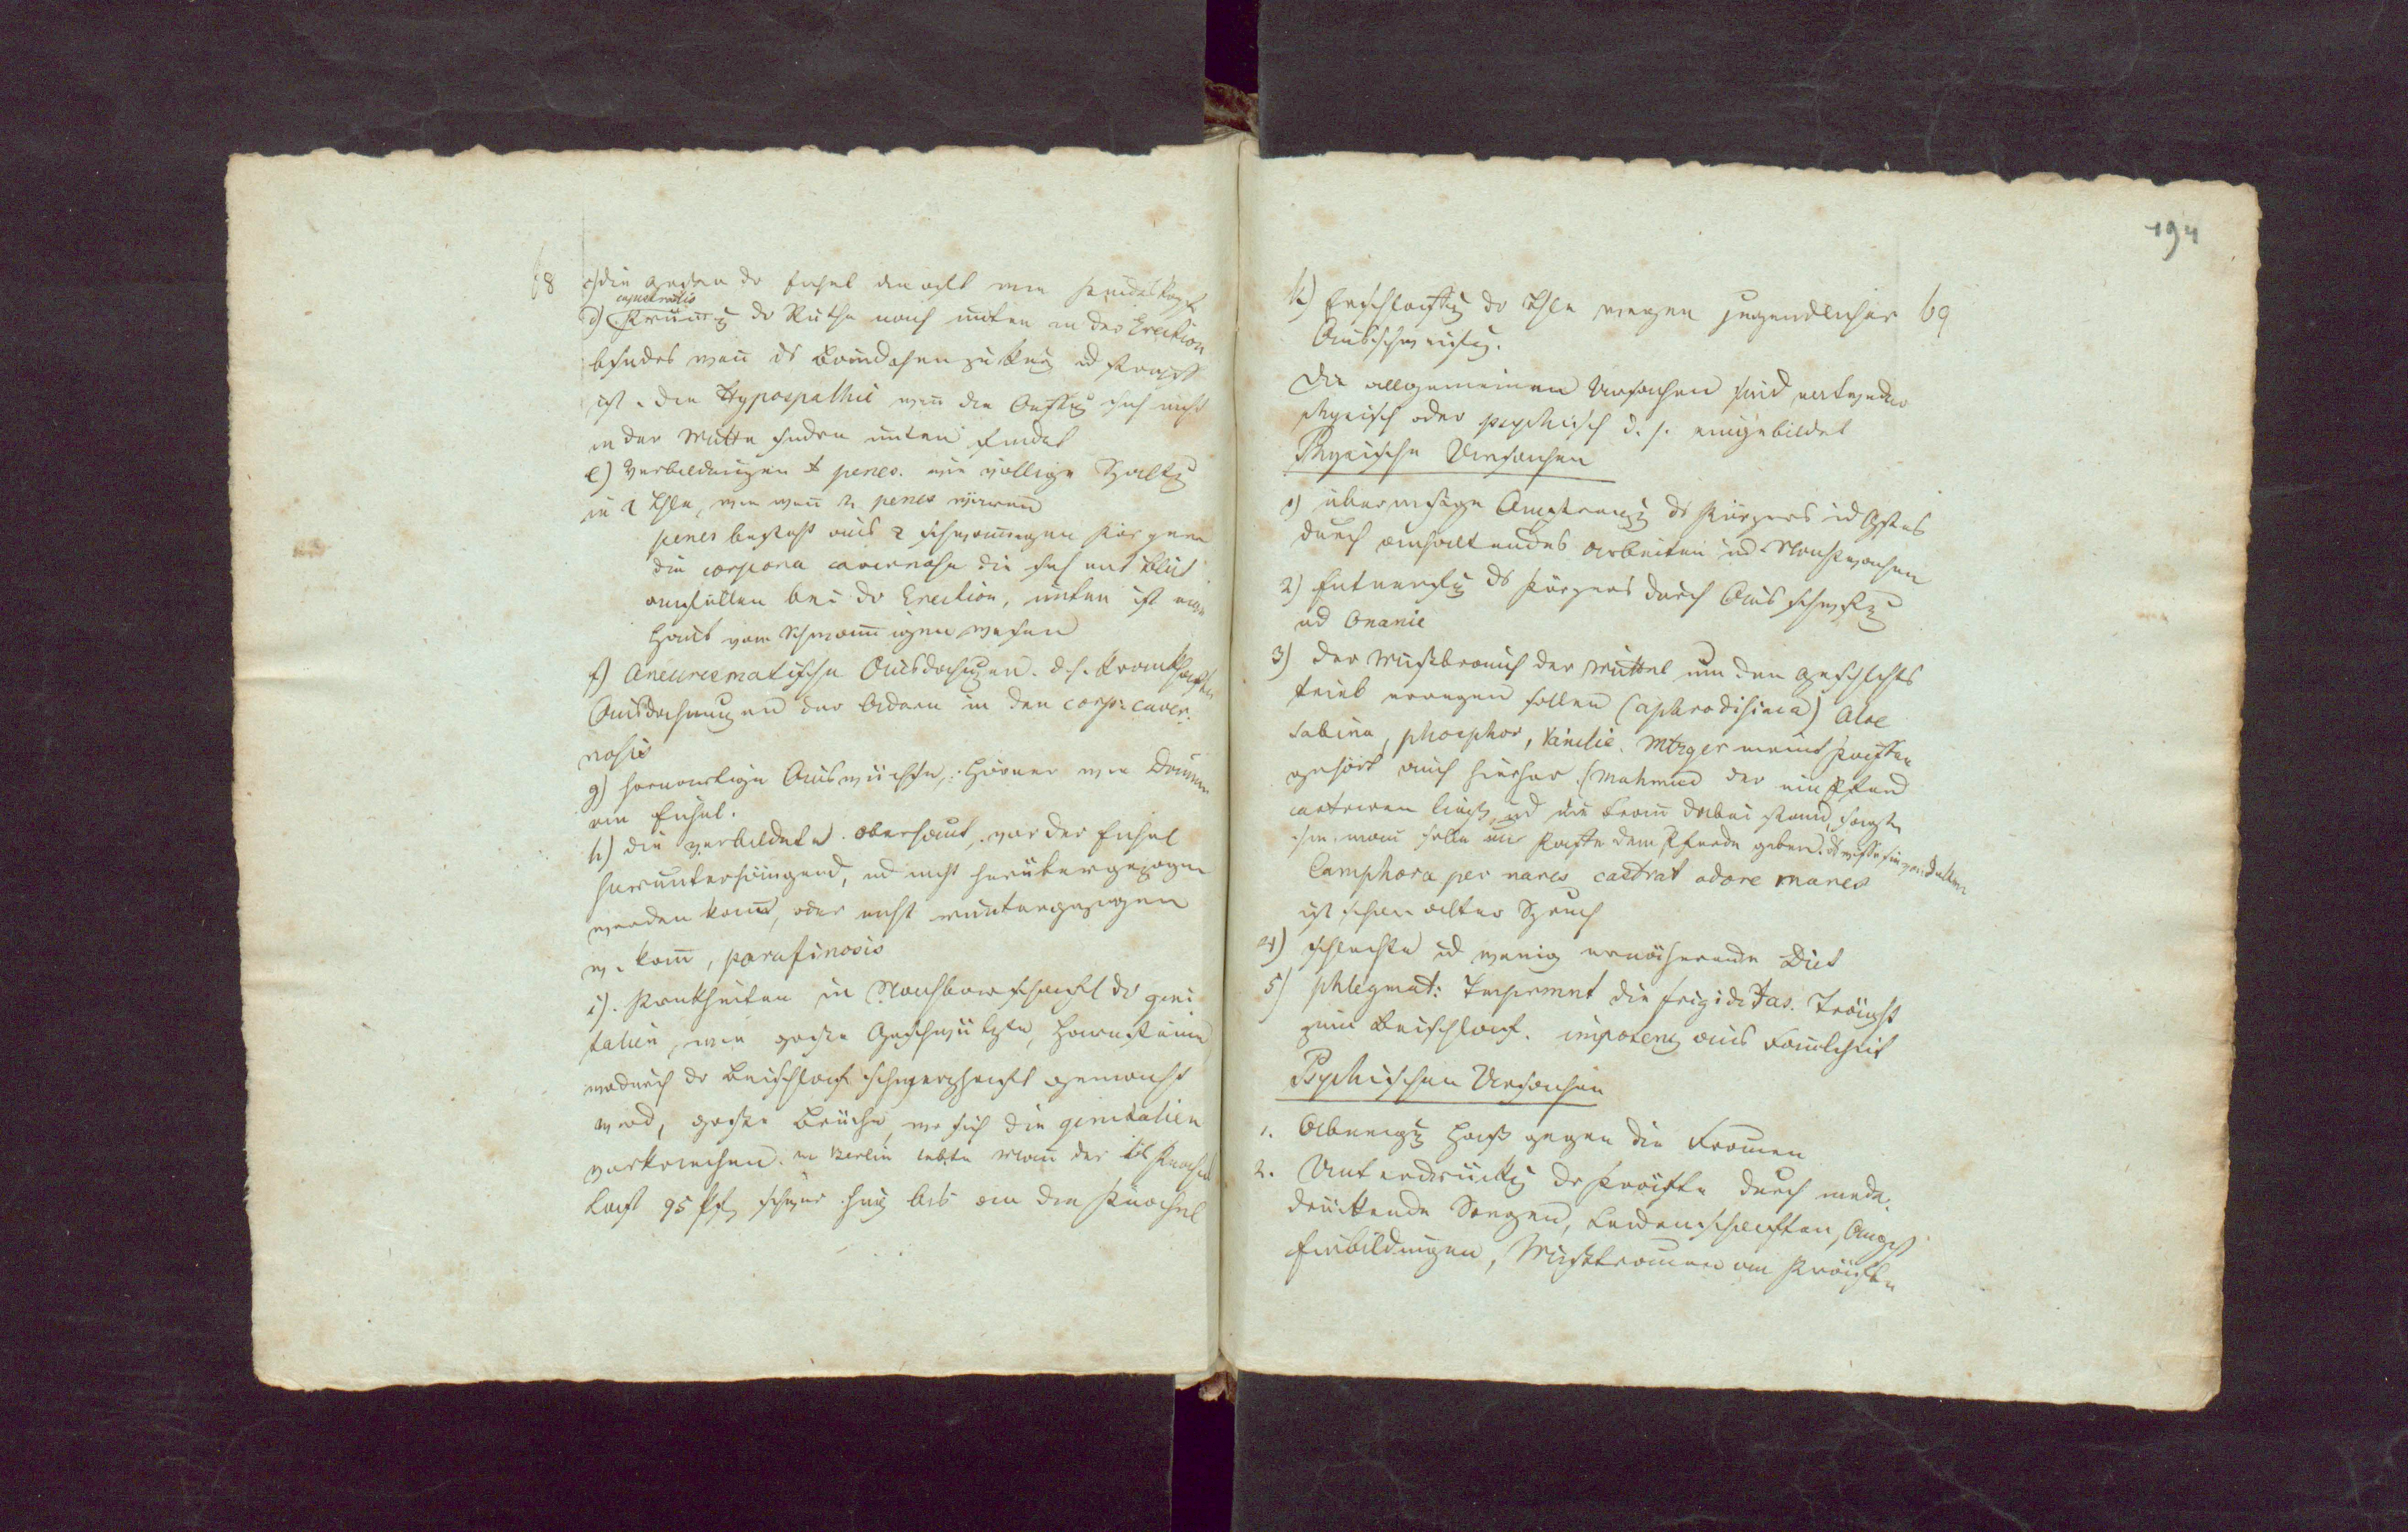 68 c) die der Eichel macht wie Kindskopf
cynistralis
d) Krümg der Ruthe nach unten in der Erection
besonders wenn das Bändchen zu kurz ud straff
ist. die Hypospathie wenn die sich nicht
in der Mitte sondern unten findet
e) Verbildungen d penes. wie völlige Spaltg
in 2 Thle, wie wenn 2 penes wären
penes besteht aus 2 schwammigen Körpern
die corpora cavernosa die sich mit Blut
anfüllen bei der Erection, unten ist eine
Haut vom Schwammigen wesen
f) Aneurismatische Ausdehngen. d.h. krankhafte
Ausdehnungen der Adern in den corp: caver-
nosis
g) hornartige Auswüchse, Hörner wie Daumen
am Eichel.
h) die verbildete Oberhaut, vor der Eichel
herunterhängend, ud nicht herübergezogen
werden kann, oder nicht runtergezogen
w. kann, parafimosis
i). Krankheiten in Nachbarschaft der geni
talien, wie große Geschwülste, Harnsteine
wodurch der Beischlaf schmerzhaft gemacht
wird, große Brüche, wo sich die genitalien
verkriechen. in Berlin lebte Mann der
95 Pf schwer hing bis an die Knöchel
194
k) Erschlaffg der Thle wegen jugendlicher 69
Ausschweifg.
Die allgemeinen Ursachen sind entweder
physisch oder psychisch d. h. eingebildet
Physische Ursachen
1) übermäßige Anstrengg ds Körpers ud Gstes
durch anhaltendes arbeiten ud Nachtwachen
2) Entnervg ds Körpers durch Ausschwfg
ud Onanie
3) der Mißbrauch der Mittel um den Geschlchts
trieb erregen sollen (aphrodisiaca) Aloe
Sabina, phosphor, Vanilie. Mtzger meint Kaffee
gehört auch hierher. (Mahmud der ein Pferd
castriren ließ, ud die Frau dabei stand, sagte
ihm man solle nur Kaffe dem Pferde geben.
Camphora per nares castrat odore mares
ist schon alter Spruch
4) schlechte ud wenig ernährende Diet
5) phlegmat: Tempemnt die frigiditas. Träght
zum Beischlaf. impotenz aus Faulheit
Psychischen Ursachen
1. Abneigg Haß gegen die Frauen
2. Unterdrückg der Kräfte durch nieder
drückende Sorgen, Leidenschaften, Angst
Einbildungen, Mißtrauen an Kräften